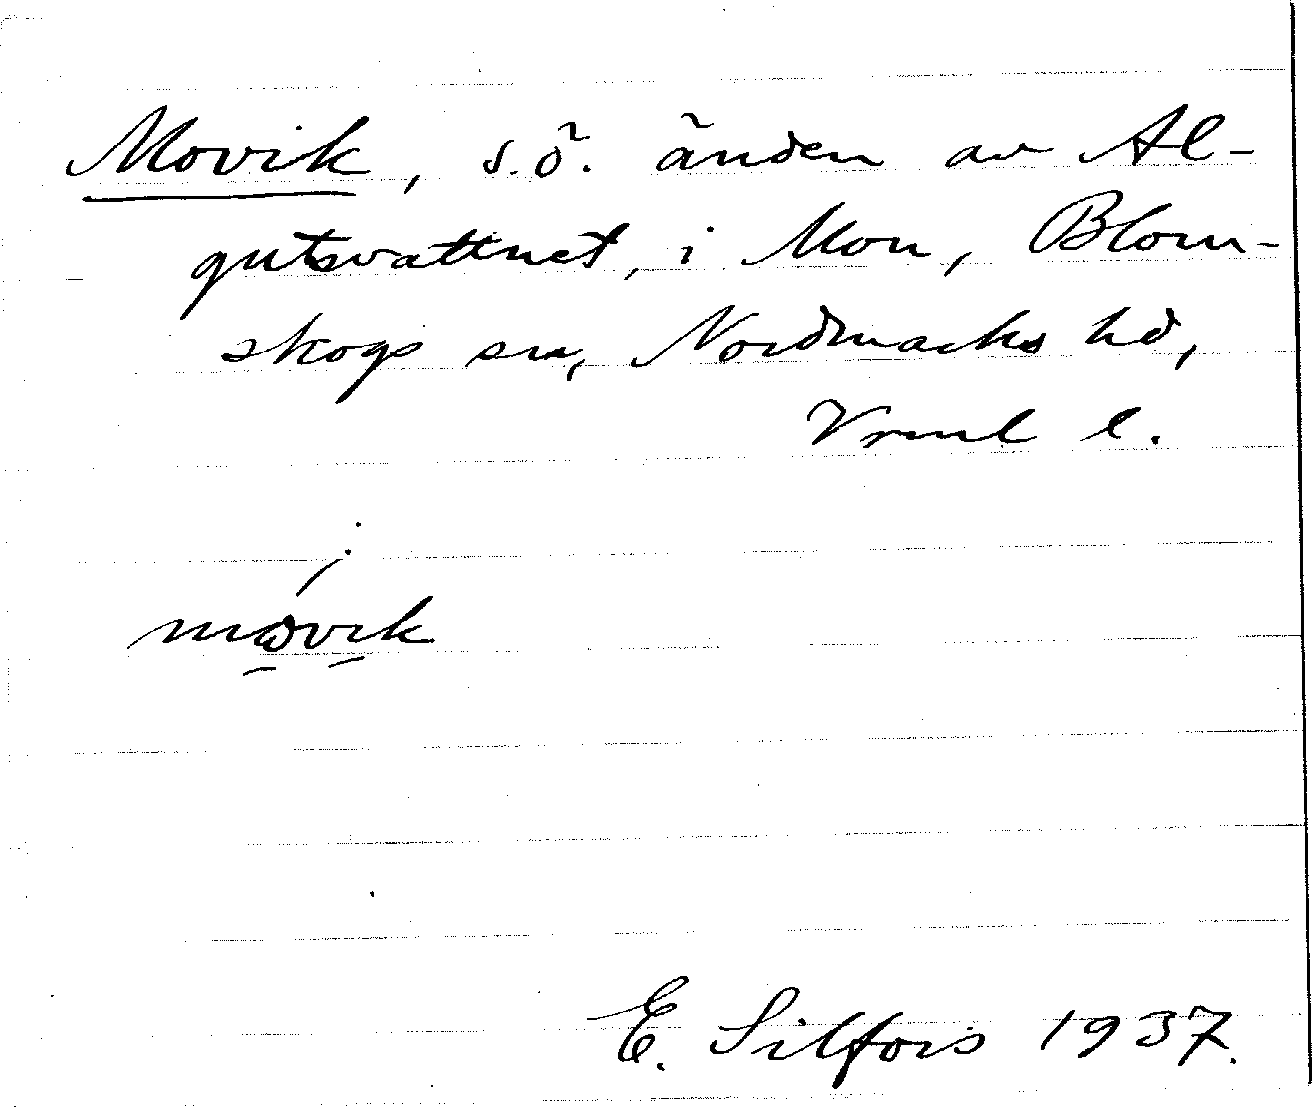 Movik, s.ö. änden av Al-
gutsvattnet, i Mon, Blom-
skogs sn, Nordmarks hd,
Vrml l.
movik
E. Silfors 1937.